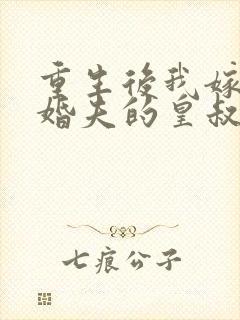 重生後我嫁
婚夫的皇叔
七痕公子